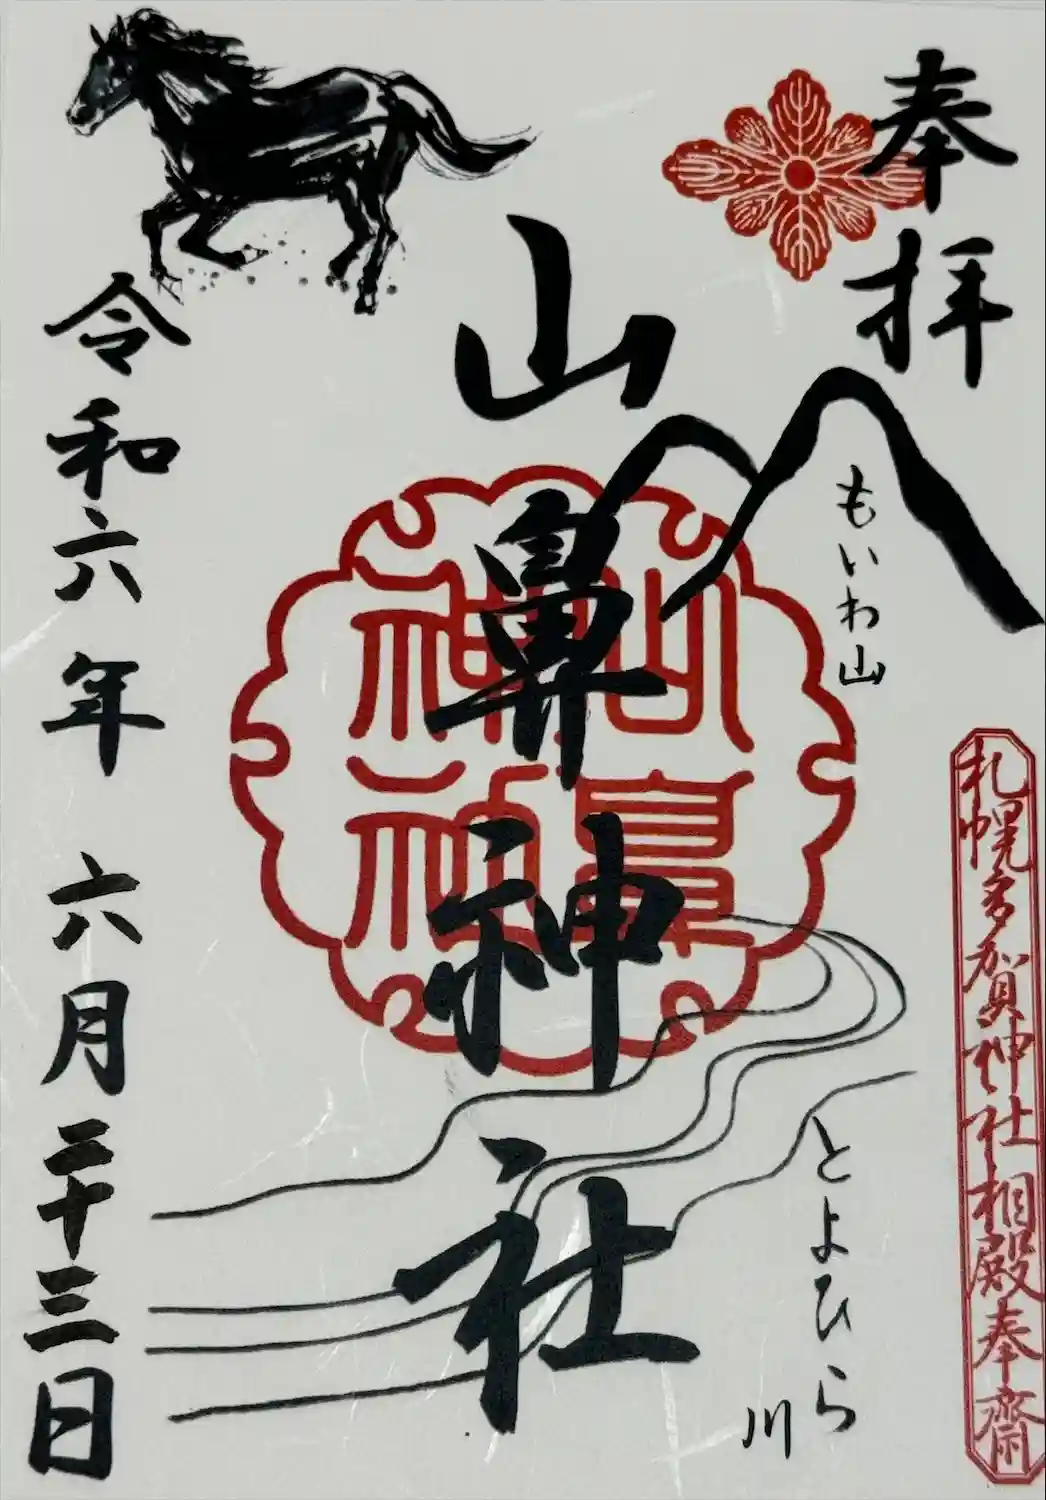 奉拝
もいわ山
札幌多賀神社相殿奉齋
とよひら川
山鼻神社
山鼻神社
令和六年六月二十三日